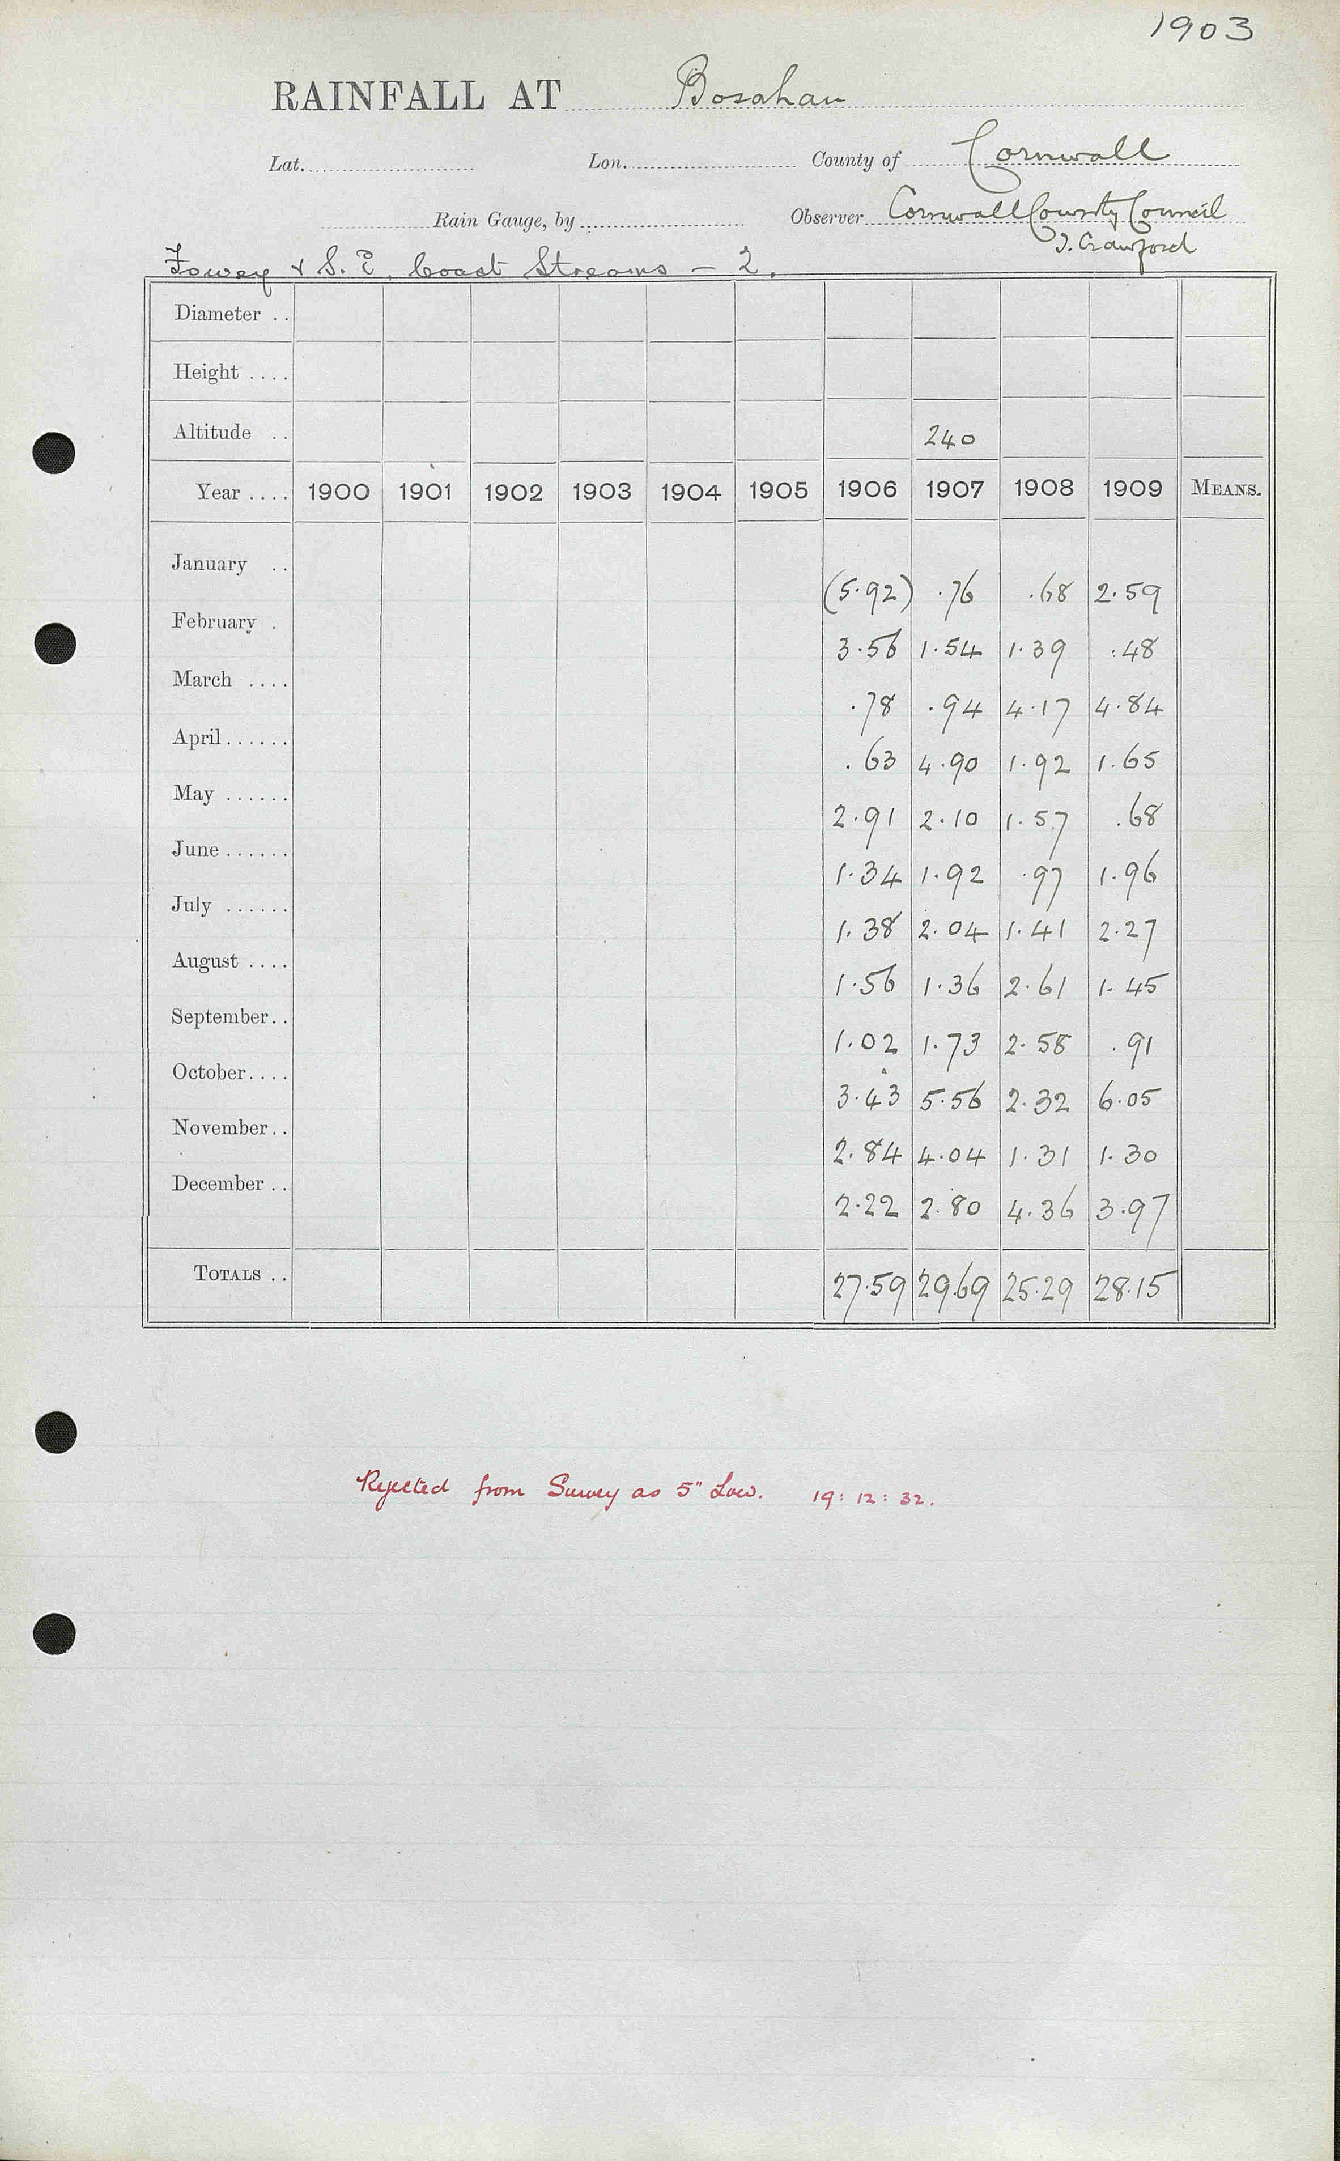 1903
RAINFALL AT Bosahan
Lat. Lon. County of Cornwall
Rain Gauge, by Observer Cornwall County Council
J. Crawford
Fowey & S. E. Coast Streams - 2.
Diameter ..
Height ....
Altitude .. 240
Year .... 1900 1901 1902 1903 1904 1905 1906 1907 1908 1909 MEANS.
January .. (5.92) .76 .68 2.59
February . 3.56 1.54 1.39 .48
March .... .78 .94 4.17 4.84
April...... .63 4.90 1.92 1.65
May ...... 2.91 2.10 1.57 .68
June ...... 1.34 1.92 .97 1.96
July ...... 1.38 2.04 1.41 2.27
August .... 1.56 1.36 2.61 1.45
September.. 1.02 1.73 2.58 .91
October.... 3.43 5.56 2.32 6.05
November.. 2.84 4.04 1.31 1.30
December .. 2.22 2.80 4.36 3.97
TOTALS .. 27.59 29.69 25.29 28.15
Rejected from Survey as 5" Low. 19: 12: 32.